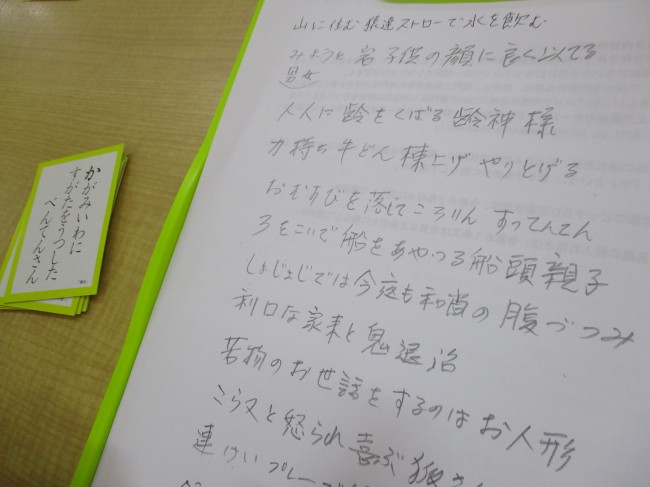 山に住む 狼達ストローで水を飲む
みようと岩 子供の顔に良く似てる
男女
人人に齢をくばる 齢神様
力持ち牛どん 棟上げやりとげる
おむすびを落してころりん すってんてん
ろをこいで船をあやつる船頭親子
しょじょじでは今夜も和尚の腹づつみ
利口な家来と鬼退治
若物のお世話をするのはお人形
こら又と怒られ喜ぶ狐
連けいプレーで
かがみいわに
すがたをうつした
べんてんさん